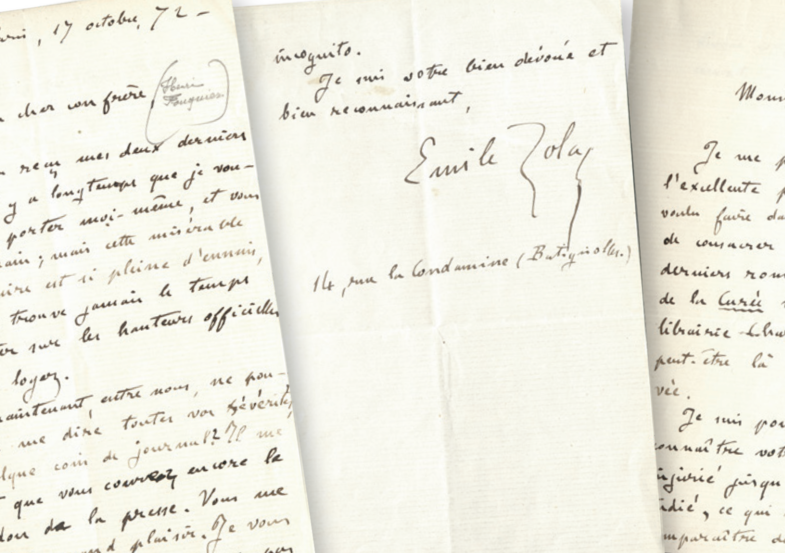 17 octobre, 72 –
cher confrère,
(Henri
Fouquier)
reçu mes deux derniers
y a longtemps que je vou-
porter moi-même, et vous
main; mais cette misérable
est si pleine d'ennuis,
trouve jamais le temps
sur les hauteurs officielles
logez.
maintenant, entre nous, ne pou-
me dire toutes vos sévérités
coin de journal? Il me
que vous couvrez encore la
de la presse. Vous me
plaisir. Je vous
incognito.
Je suis votre bien dévoué et
bien reconnaissant,
Emile Zola
14, rue la Condamine (Batignolles.)
Je me p
l'excellente p
voulu faire da
de consacrer
derniers rom
de la Curée
librairie
peut-être là
vée.
Je suis pou
connaître vot
injurié jusqu
ce qui